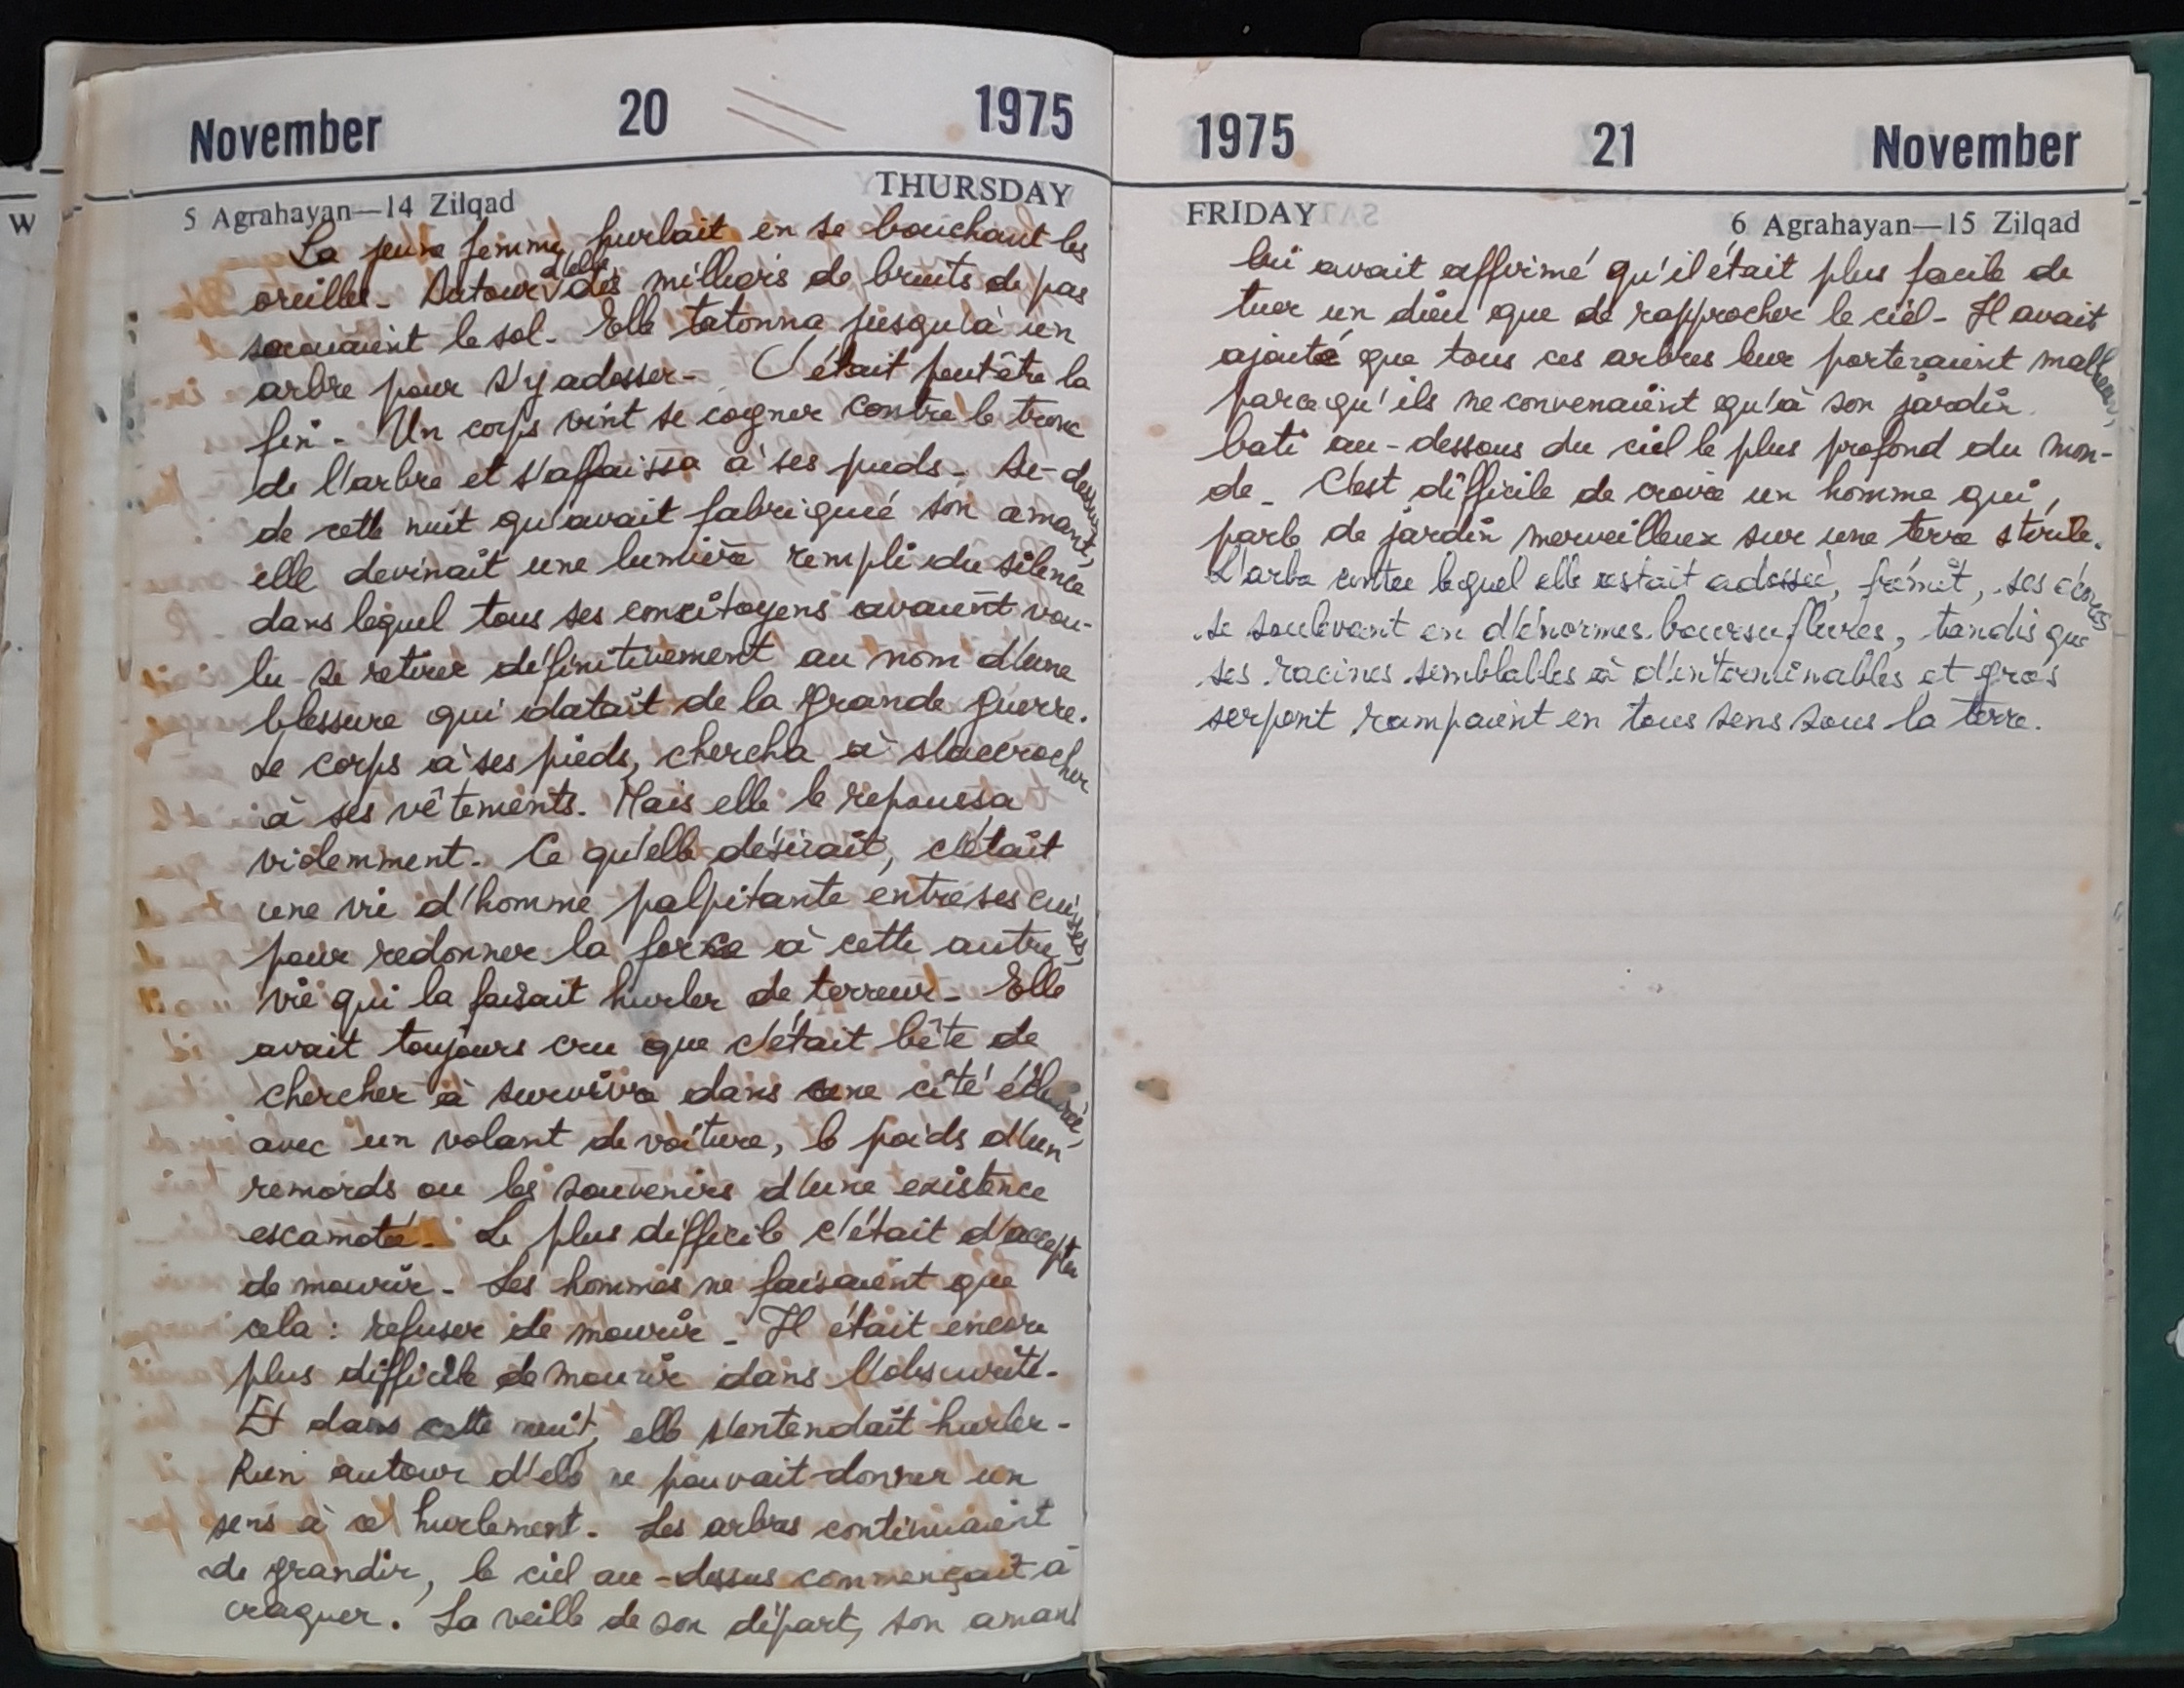 November 20 1975
THURSDAY
5 Agrahayan—14 Zilqad
La jeune femme hurlait en se bouchant les
oreilles. Autour d'elle des milliers de bruits de pas
secouaient le sol. Elle tatonna jusqu'à un
arbre pour s'y adosser. C'était peut être la
fin. Un corps vint se cogner contre le tronc
de l'arbre et s'affaissa à ses pieds. Au-dessus
de cette nuit qu'avait fabriquée son amant,
elle devinait une lumière rempli du silence
dans lequel tous ses concitoyens avaient vou-
lu se retirer définitivement au nom d'une
blessure qui datait de la grande guerre.
Le corps à ses pieds, chercha à s'accrocher
à ses vêtements. Mais elle le repoussa
violemment. Ce qu'elle désirait, c'était
une vie d'homme palpitante entre ses cuisses,
pour redonner la force à cette autre
vie qui la faisait hurler de terreur. Elle
avait toujours cru que c'était bête de
chercher à survivre dans une cité éclairée,
avec un volant de voiture, le poids d'un
remords ou les souvenirs d'une existence
escamotée. Le plus difficile c'était d'accepter
de mourir. Les hommes ne faisaient que
cela : refuser de mourir. Il était encore
plus difficile de mourir dans l'obscurité.
Et dans cette nuit, elle s'entendait hurler.
Rien autour d'elle ne pouvait donner un
sens à ce hurlement. Les arbres continuaient
de grandir, le ciel au-dessus commençait à
craquer. La veille de son départ, son amant
1975 21 November
FRIDAY
6 Agrahayan—15 Zilqad
lui avait affirmé qu'il était plus facile de
tuer un dieu que de rapprocher le ciel. Il avait
ajouté que tous ces arbres leur porteraient malheur,
parce qu'ils ne convenaient qu'à son jardin
bati au-dessous du ciel le plus profond du mon-
de. C'est difficile de croire un homme qui,
parle de jardin merveilleux sur une terre stérile.
L'arbre contre lequel elle restait adossée, frémit, ses écorces
se soulevant en d'énormes boursuflures, tandis que
ses racines semblables à d'interminables et gros
serpent rampaient en tous sens sous la terre.